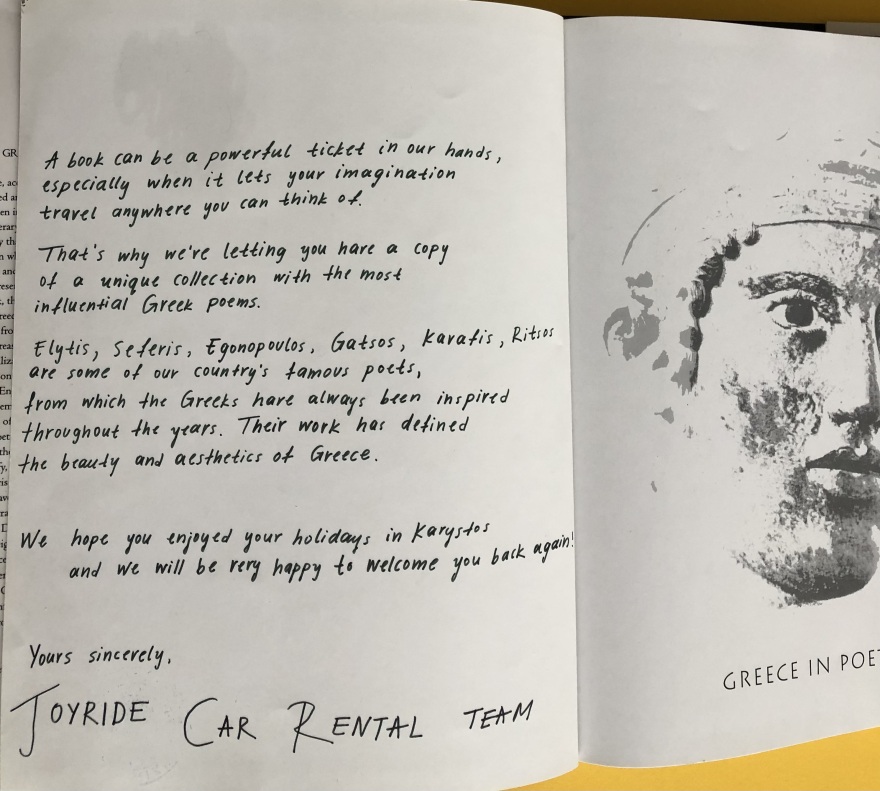 A book can be a powerful ticket in our hands,
especially when it lets your imagination
travel anywhere you can think of.
That's why we're letting you have a copy
of a unique collection with the most
influential Greek poems.
Elytis, Seferis, Egonopoulos, Gatsos, Kavafis, Ritsos
are some of our country's famous poets,
from which the Greeks have always been inspired
throughout the years. Their work has defined
the beauty and aesthetics of Greece.
We hope you enjoyed your holidays in Karystos
and we will be very happy to welcome you back again!
Yours sincerely,
JOYRIDE CAR RENTAL TEAM
GREECE IN POET